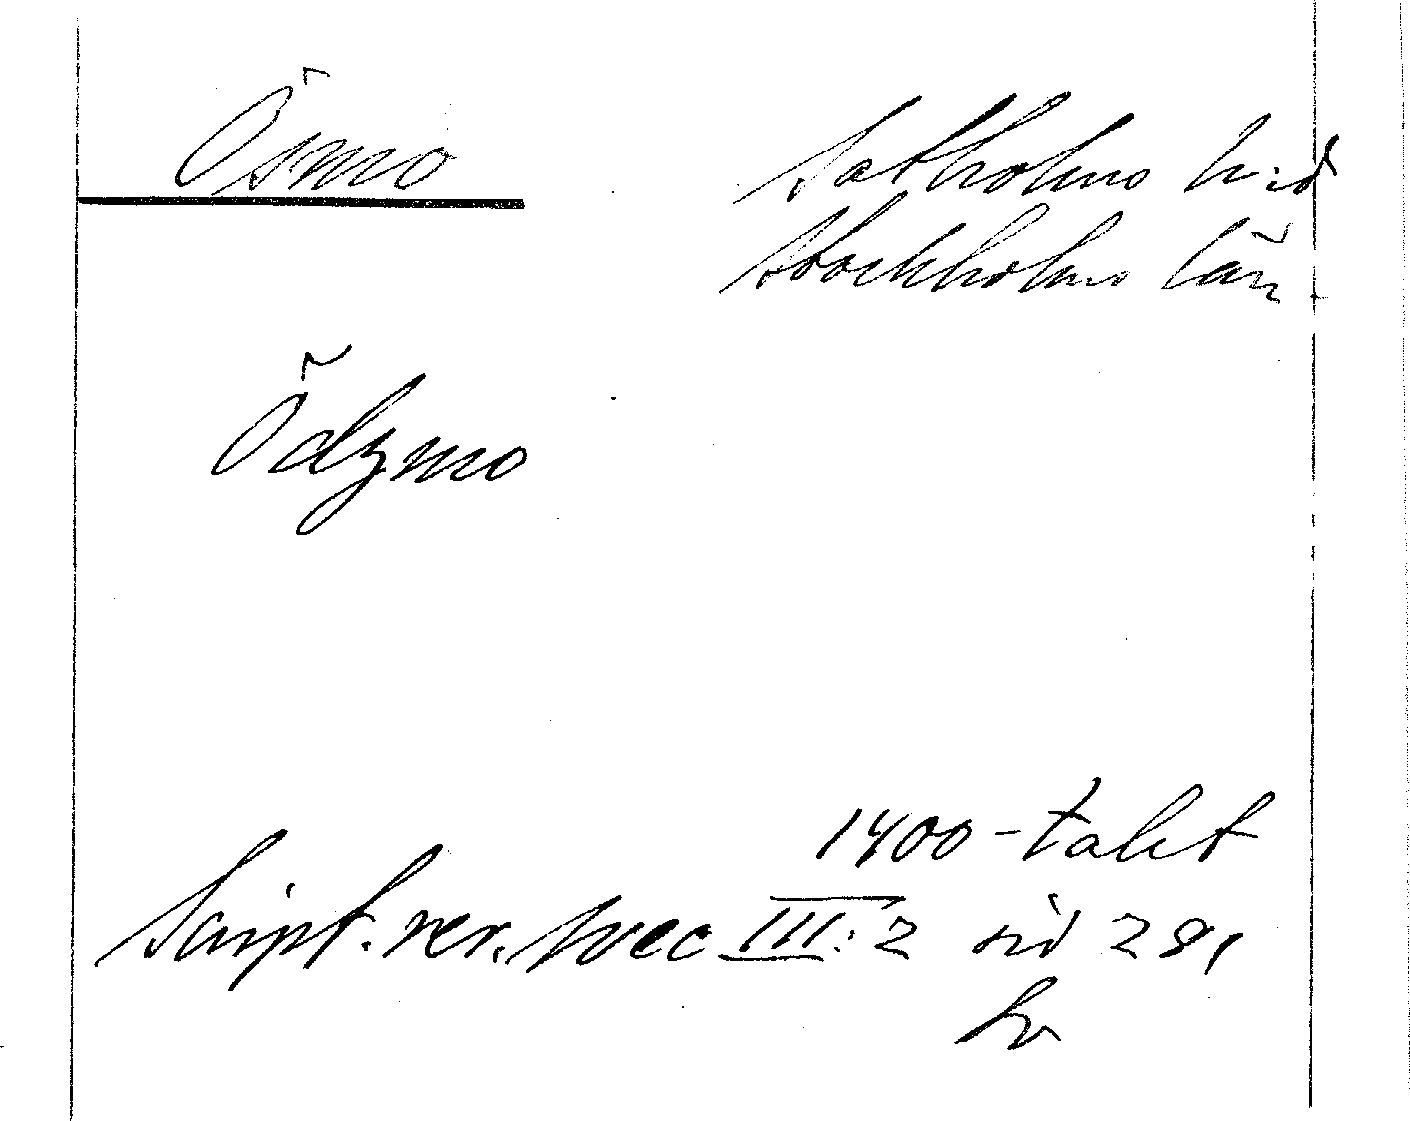 Ösmo
Sotholms h:d
Stockholms län.
Ödzmo
1400-talet
Script. rer. svec III:2 sid 28,